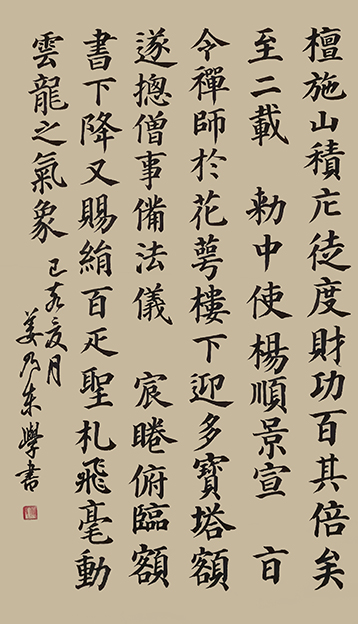 檀施山積庀徒度財功百其倍矣
至二載 勑中使楊順景宣 旨
令禪師於花萼樓下迎多寶塔額
遂摠僧事備法儀 宸睠俯臨額
書下降又賜絹百疋聖札飛毫動
雲龍之氣象
己亥夏月
姜乃東學書